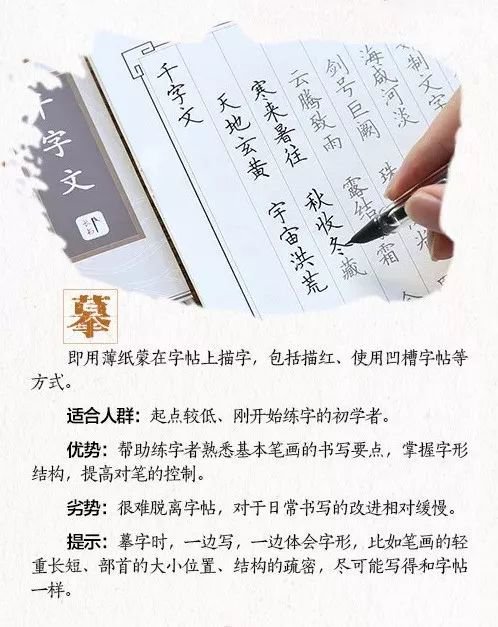 千字文
千字文
天地玄黄 宇宙洪荒
寒来暑往 秋收冬藏
云腾致雨 露结 霜
剑号巨阙 珠 光
海咸河淡
制文字
摹
即用薄纸蒙在字帖上描字，包括描红、使用凹槽字帖等
方式。
适合人群：起点较低、刚开始练字的初学者。
优势：帮助练字者熟悉基本笔画的书写要点，掌握字形
结构，提高对笔的控制。
劣势：很难脱离字帖，对于日常书写的改进相对缓慢。
提示：摹字时，一边写，一边体会字形，比如笔画的轻
重长短、部首的大小位置、结构的疏密，尽可能写得和字帖
一样。